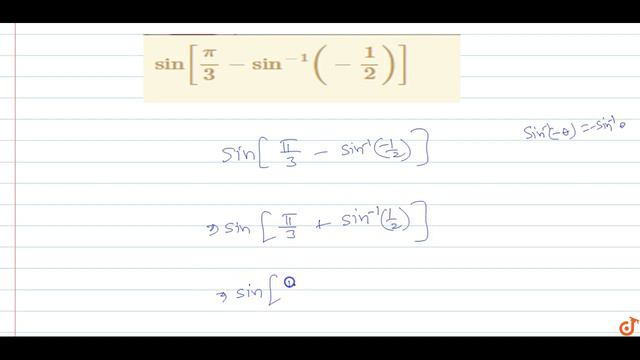 sin[π/3 − sin⁻¹(−1/2)]
sin⁻¹(−θ) = −sin⁻¹θ
sin[π/3 − sin⁻¹(−1/2)]
⇒ sin[π/3 + sin⁻¹(1/2)]
⇒ sin[